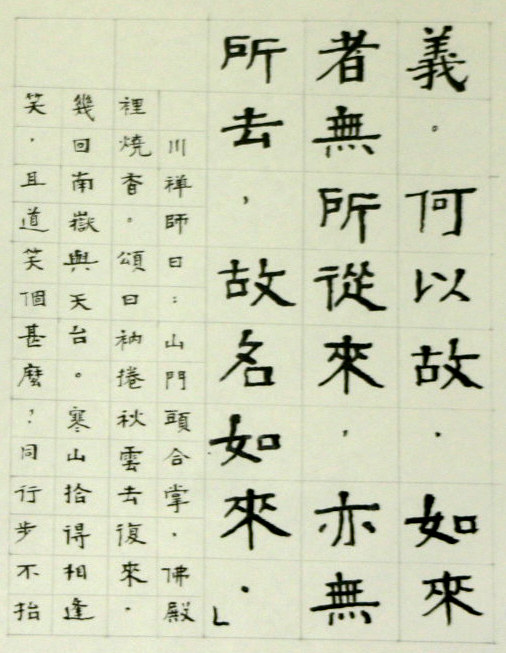 義。何以故.如來
者無所從來,亦無
所去,故名如來.」
川禅師曰:山門頭合掌.佛殿
裡燒香。頌曰衲捲秋雲去復來.
幾回南嶽與天台。寒山拾得相逢
笑,且道笑個甚麼,同行步不抬